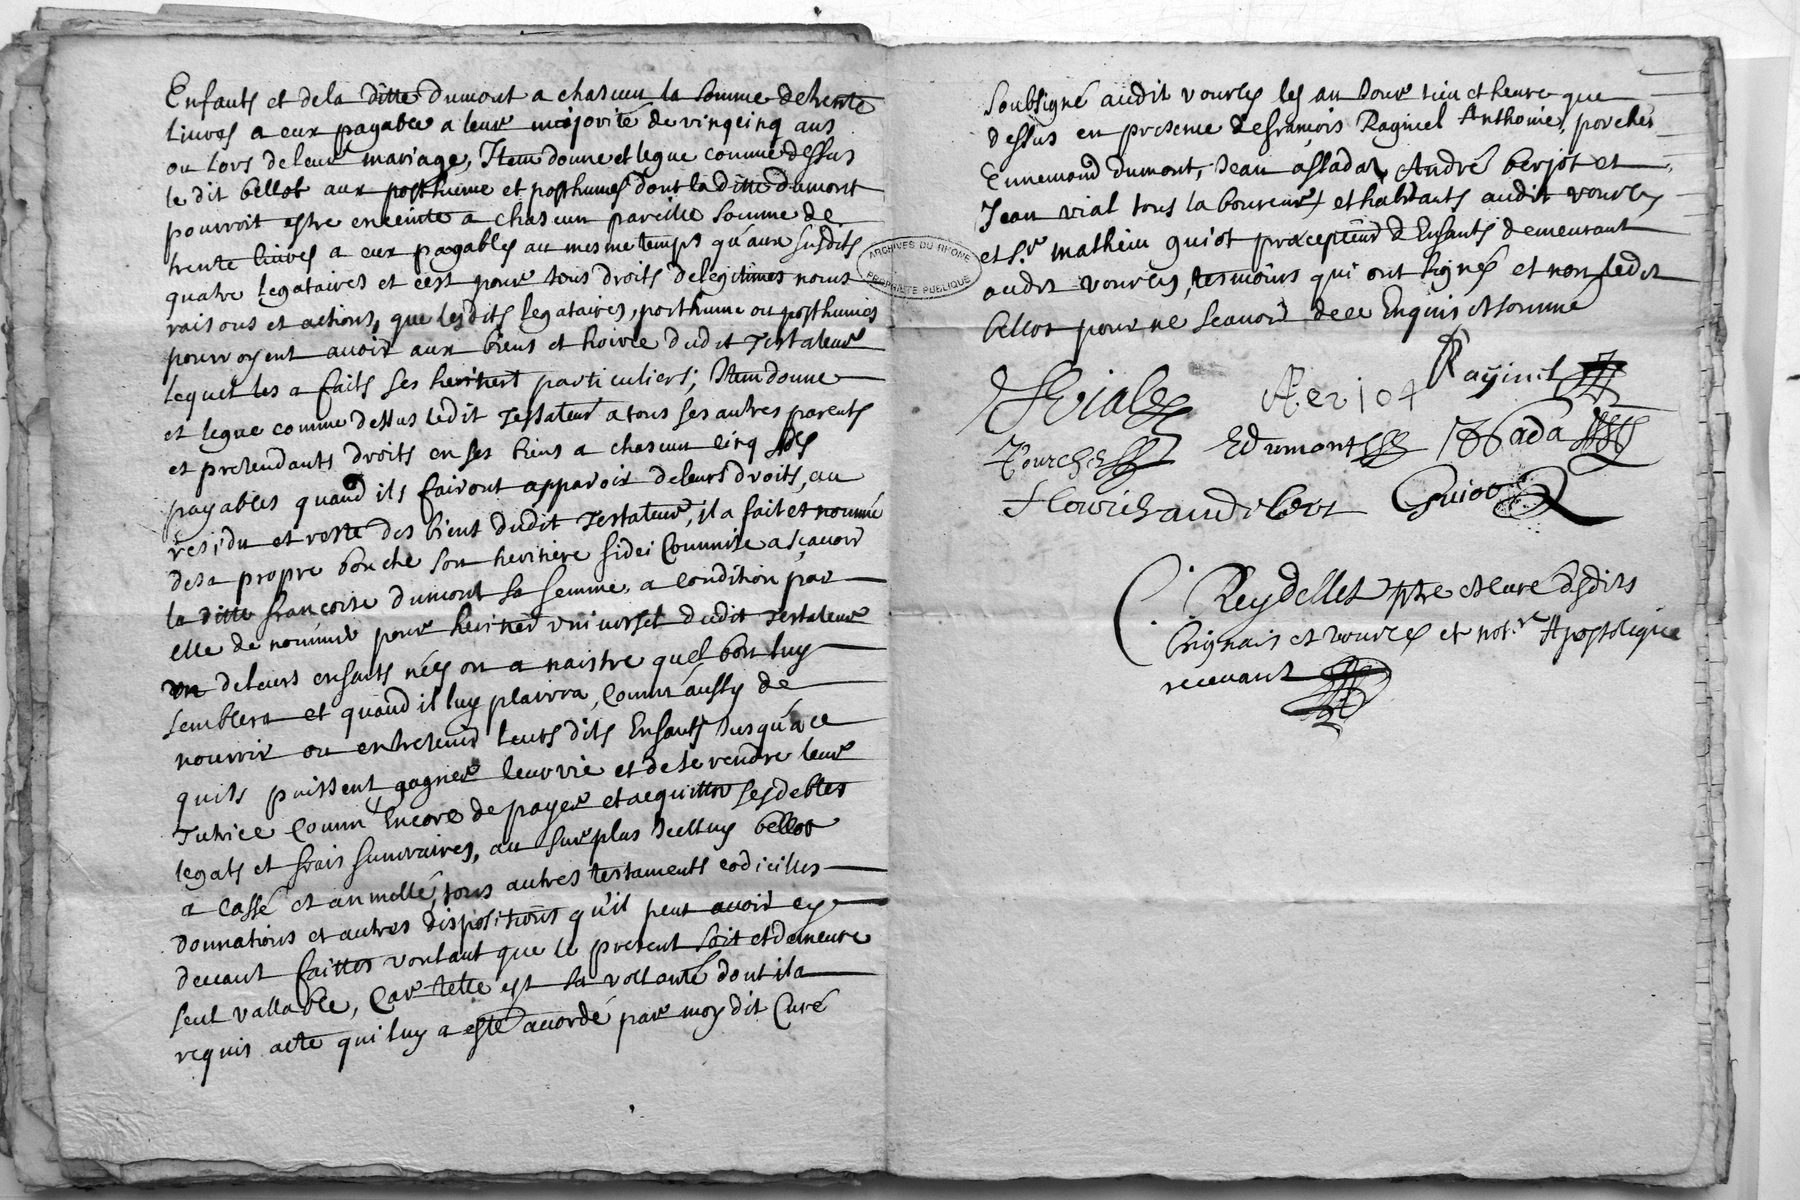 Enfants et dela ditte dumont a chascun la somme de trente
livres a eux payable a leur majorité de vingcinq ans
ou lors de leur mariage, Item donne et legue comme dessus
le dit bellot aux posthume et posthumes dont la ditte dumont
pourroit estre enceinte a chascun pareille somme de
trente livres a eux payables au mesme temps qu'aux susdits
quatre legataires et c'est pour tous droits de legitimes noms
raisons et actions, que lesdits legataires, posthume ou posthumes
pourroyent avoir aux biens et hoirie dudit Testateur
lequel les a faits ses heritiers particuliers; Item donne
et legue comme dessus ledit Testateur a tous ses autres parents
et pretendants droits en ses biens a chascun cinq sols
payables quand ils fairont apparoir de leurs droits, au
residu et reste des biens dudit Testateur, il a fait et nommé
de sa propre bouche son heritiere fidei commise a sçavoir
la ditte françoise dumont sa femme, a condition par
elle de nommer pour heritier universel dudit Testateur
un de leurs enfants nées ou a naistre quel bon luy
semblera et quand il luy plairra, comm'aussy de
nourrir ou entretenir leurs dits Enfants Jusqu'a ce
quils puissent gagner leur vie et de se rendre leur
Tutrice comm'Encore de payer et acquitter ses debtes
legats et frais funeraires, au surplus Icelluy bellot
a cassé et annullé, tous autres testaments codicilles
donnations et autres dispositions qu'il peut avoir cy
devant faittes voulant que le present soit et demeure
seul vallable, Car telle est sa vollonté dont il a
requis acte qui luy a esté accordé par moy dit Curé
ARCHIVES DU RHONE
PROPRIETE PUBLIQUE
soubsigné audit vourles les an Jour lieu et heure que
dessus en presence de françois Raginel Anthoine, porcher
Ennemond dumont, Jean assada, André berjot et
Jean vial tous laboureurs et habitants audit vourles
et Sr mathieu guiot præcepteur d'Enfants demeurant
audit vourles, tesmoins qui ont signés et non ledit
bellot pour ne sçavoir de ce Enquis et sommé
J Vial Raginel
Edumont assada
Guiot
Reydellet ptre et curé desdits
brignais et vourles et not.re Apostolique
recevant